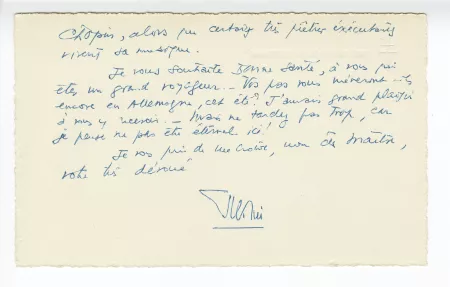 Chopin, alors que certains très piètres exécutants
vivent sa musique.
Je vous souhaite bonne santé, à vous qui
êtes un grand voyageur. _ Vos pas vous mèneront-ils
encore en Allemagne, cet été? J'aurais grand plaisir
à vous y revoir. _ Mais ne tardez pas trop, car
je pense ne pas être éternel ici!
Je vous prie de me croire, mon cher Maître,
votre très dévoué